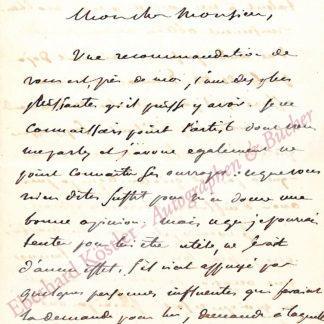 Mon cher Monsieur,
Une recommandation de
vous est, près de moi, l'une des plus
puissantes qu'il puisse y avoir. Je ne
connaissais point l'artiste dont vous
me parlez et j'avoue également ne
point connaître ses ouvrages: ce que vous
m'en dites suffit pour m'en donner une
bonne opinion; mais, ce que je pourrais
tenter pour lui être utile, ne serait
d'aucun effet, s'il n'était appuyé par
quelques personnes influentes qui feraient
la demande pour lui, demande à laquelle
Eberhard Köstler · Autographen & Bücher